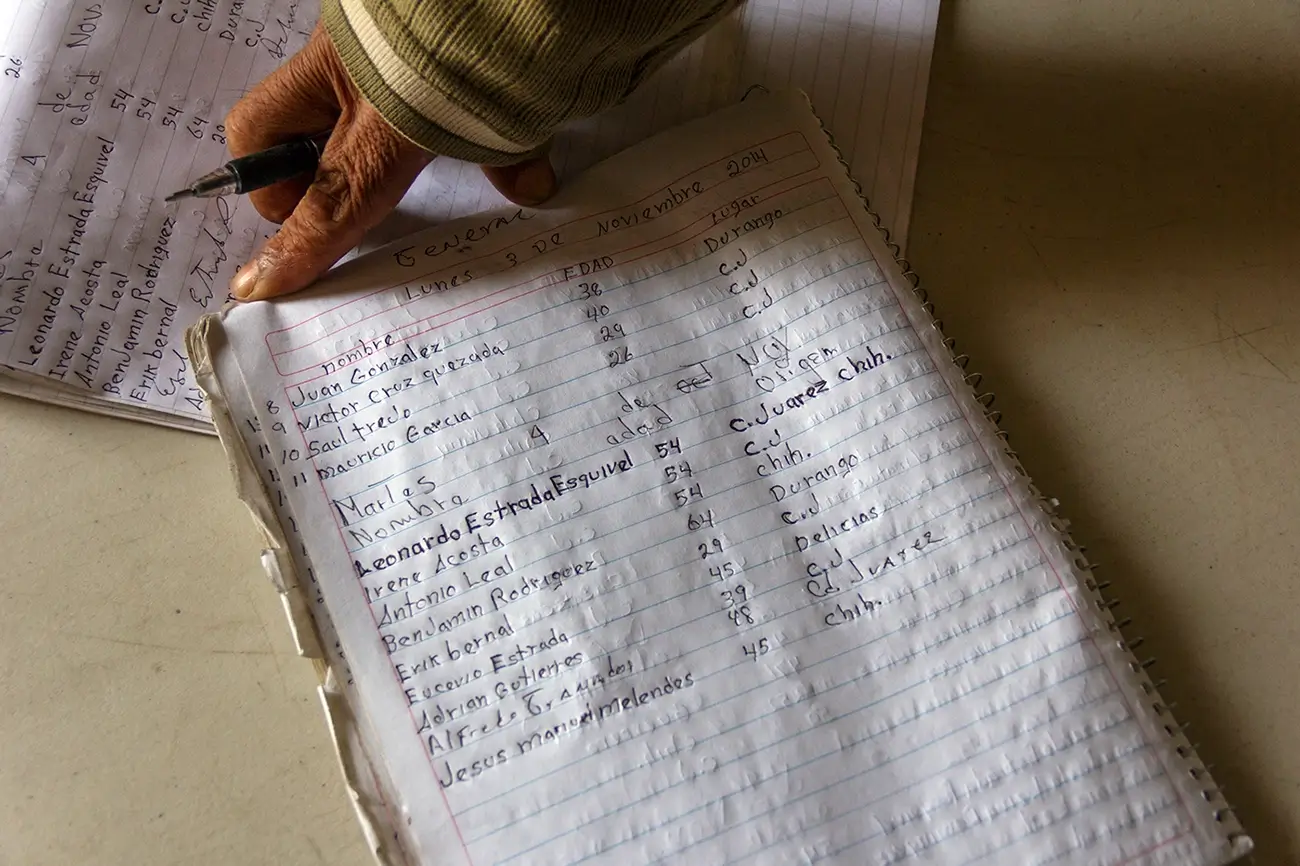 General
Lunes 3 De Noviembre 2014
nombre EDAD Lugar
8 Juan Gonzalez 38 Durango
9 Victor cruz quezada 40 C.J
10 Saul fredo 29 C.J
11 Mauricio Garcia 26 C.J
Martes 4 de
Nombra adad Origem
Leonardo Estrada Esquivel 54 C.Juarez chih.
Irene Acosta 54 C.J
Antonio Leal 54 chih.
Benjamin Rodriguez 64 Durango
Erik bernal 29 C.J
Eucevio Estrada 45 Delicias
Adrian Gutierres 39 C.J
Alfredo 48 Cd. Juarez
Jesus manuel Melendes 45 chih.
26
A de Nov
Nombra adad
Leonardo Estrada Esquivel 54
Irene Acosta 54 chih
Antonio Leal 54 Duran
Benjamin Rodriguez 64 C.J
Erik bernal